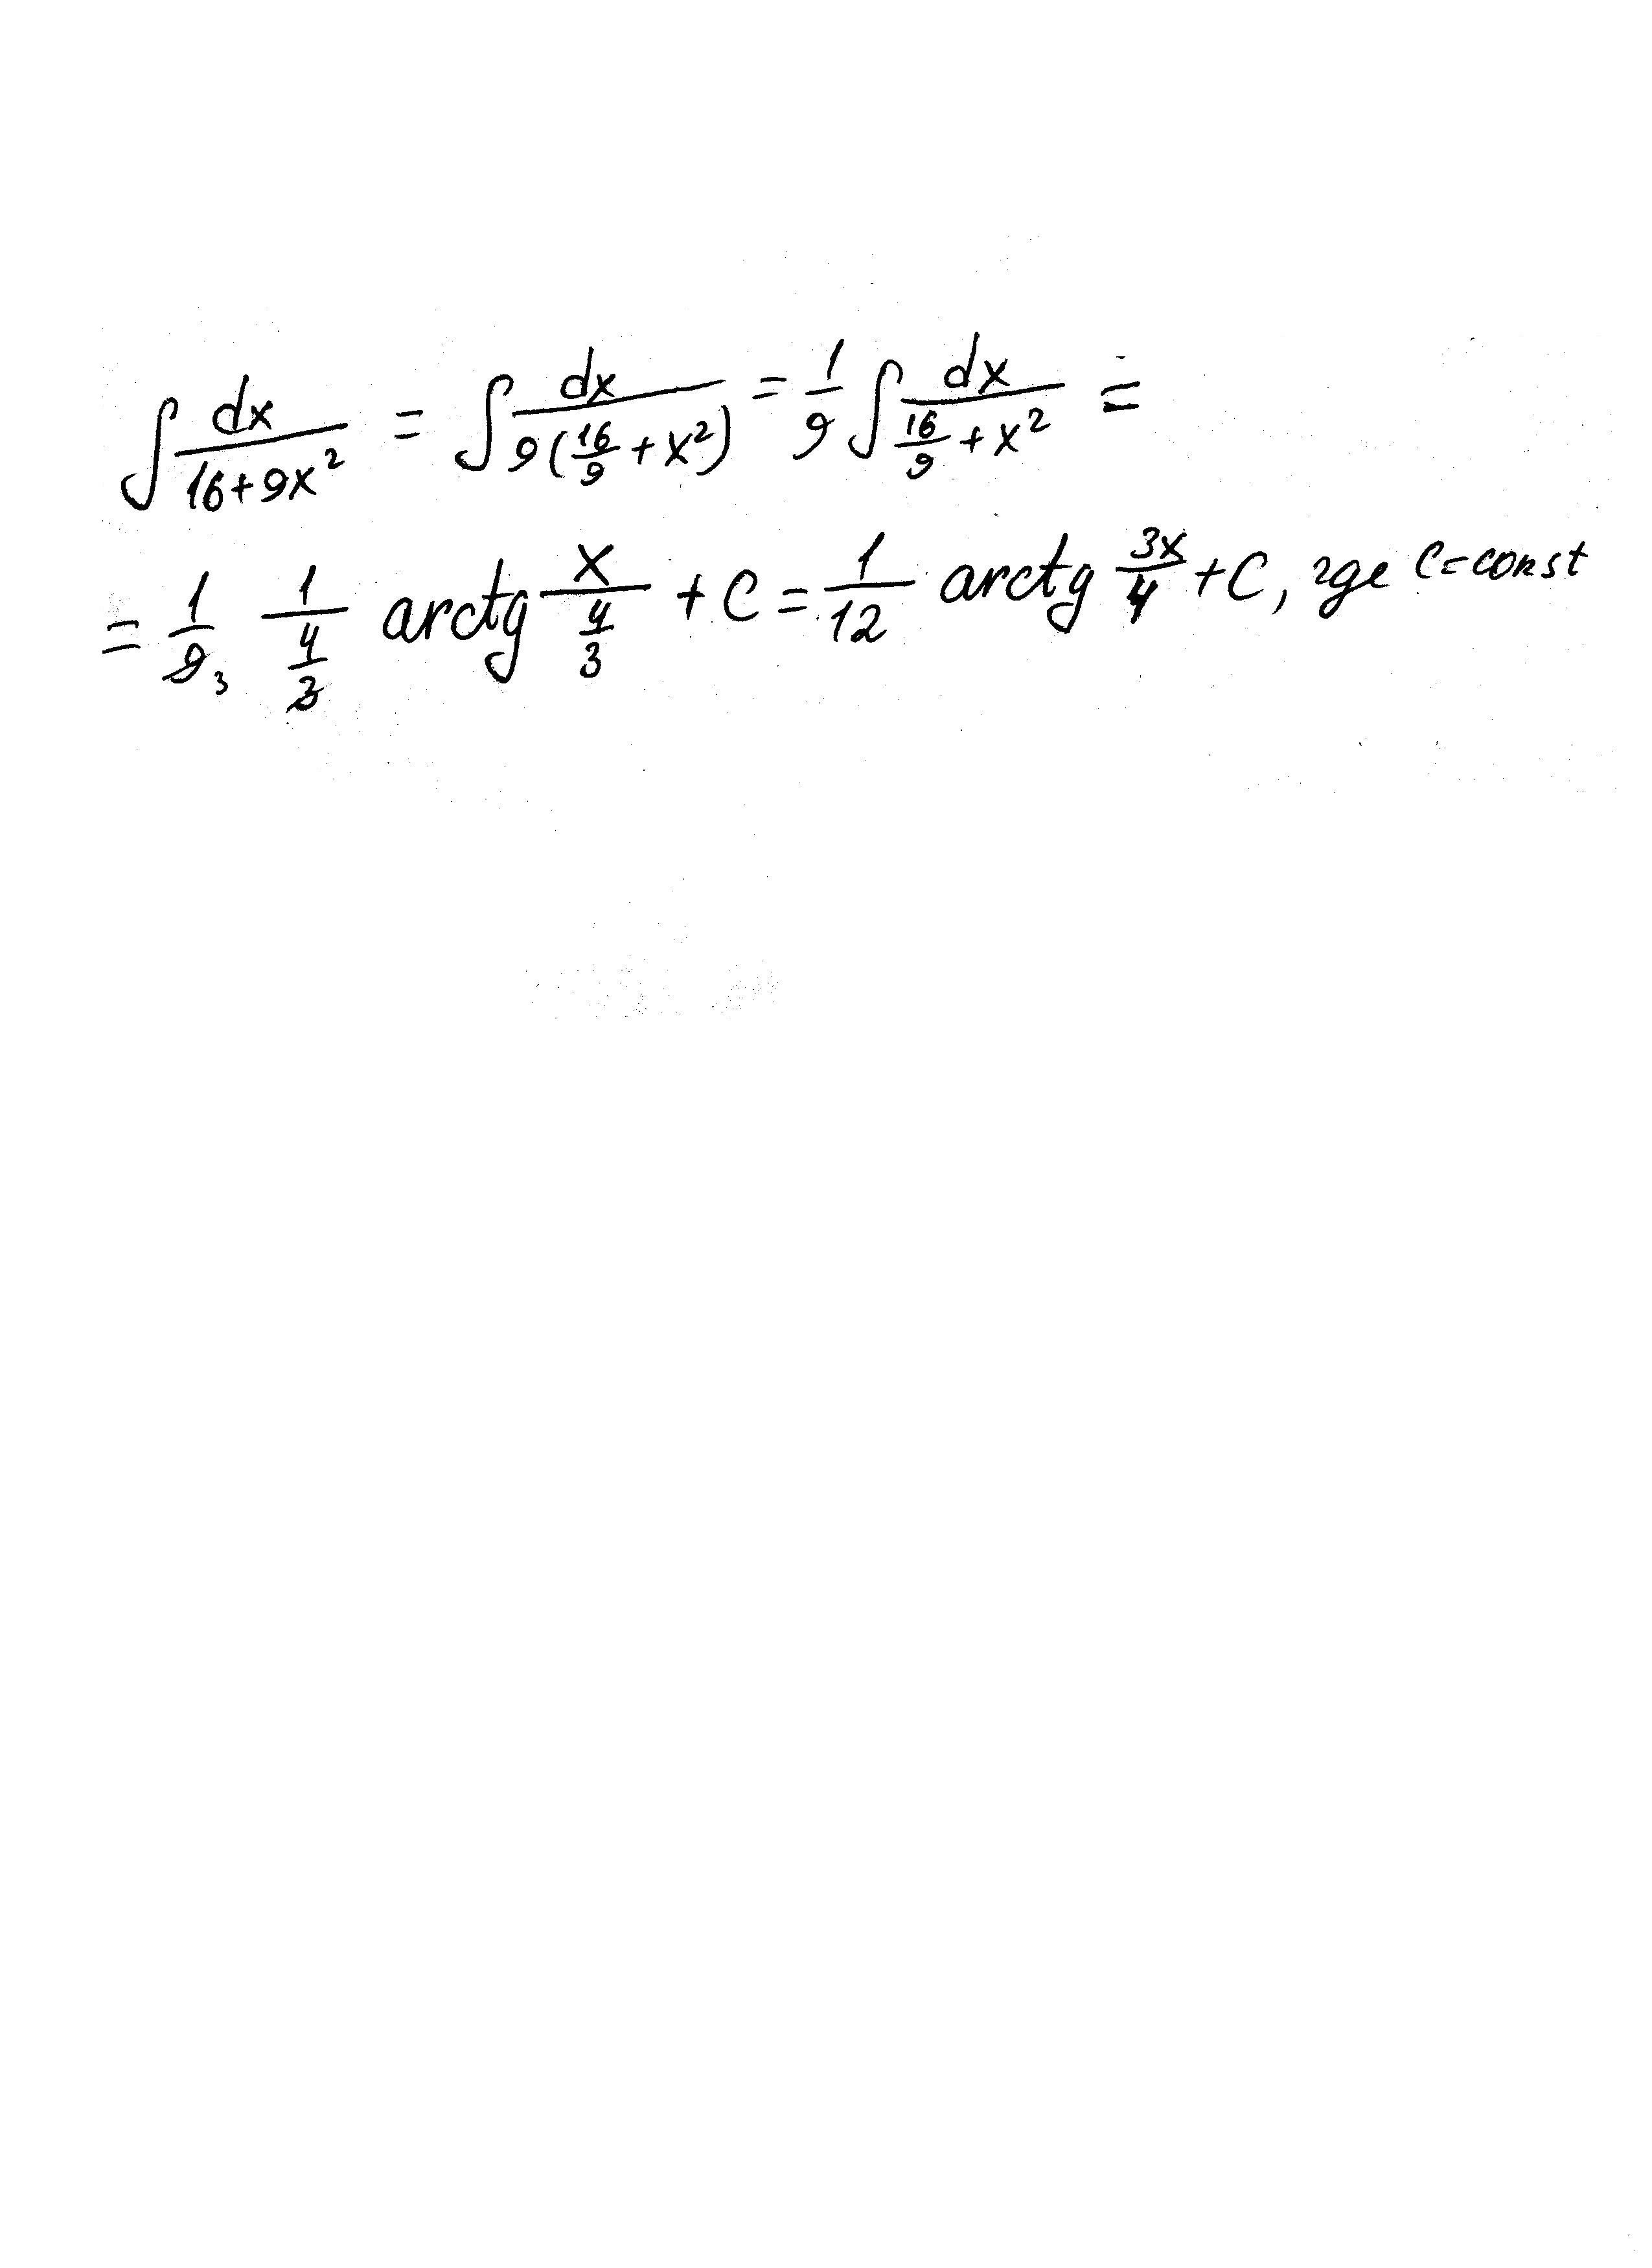 ∫ dx/(16+9x²) = ∫ dx/(9(16/9+x²)) = 1/9 ∫ dx/(16/9+x²) =
= 1/9₃ 1/(4/3) arctg x/(4/3) + C = 1/12 arctg 3x/4 + C, где C=const